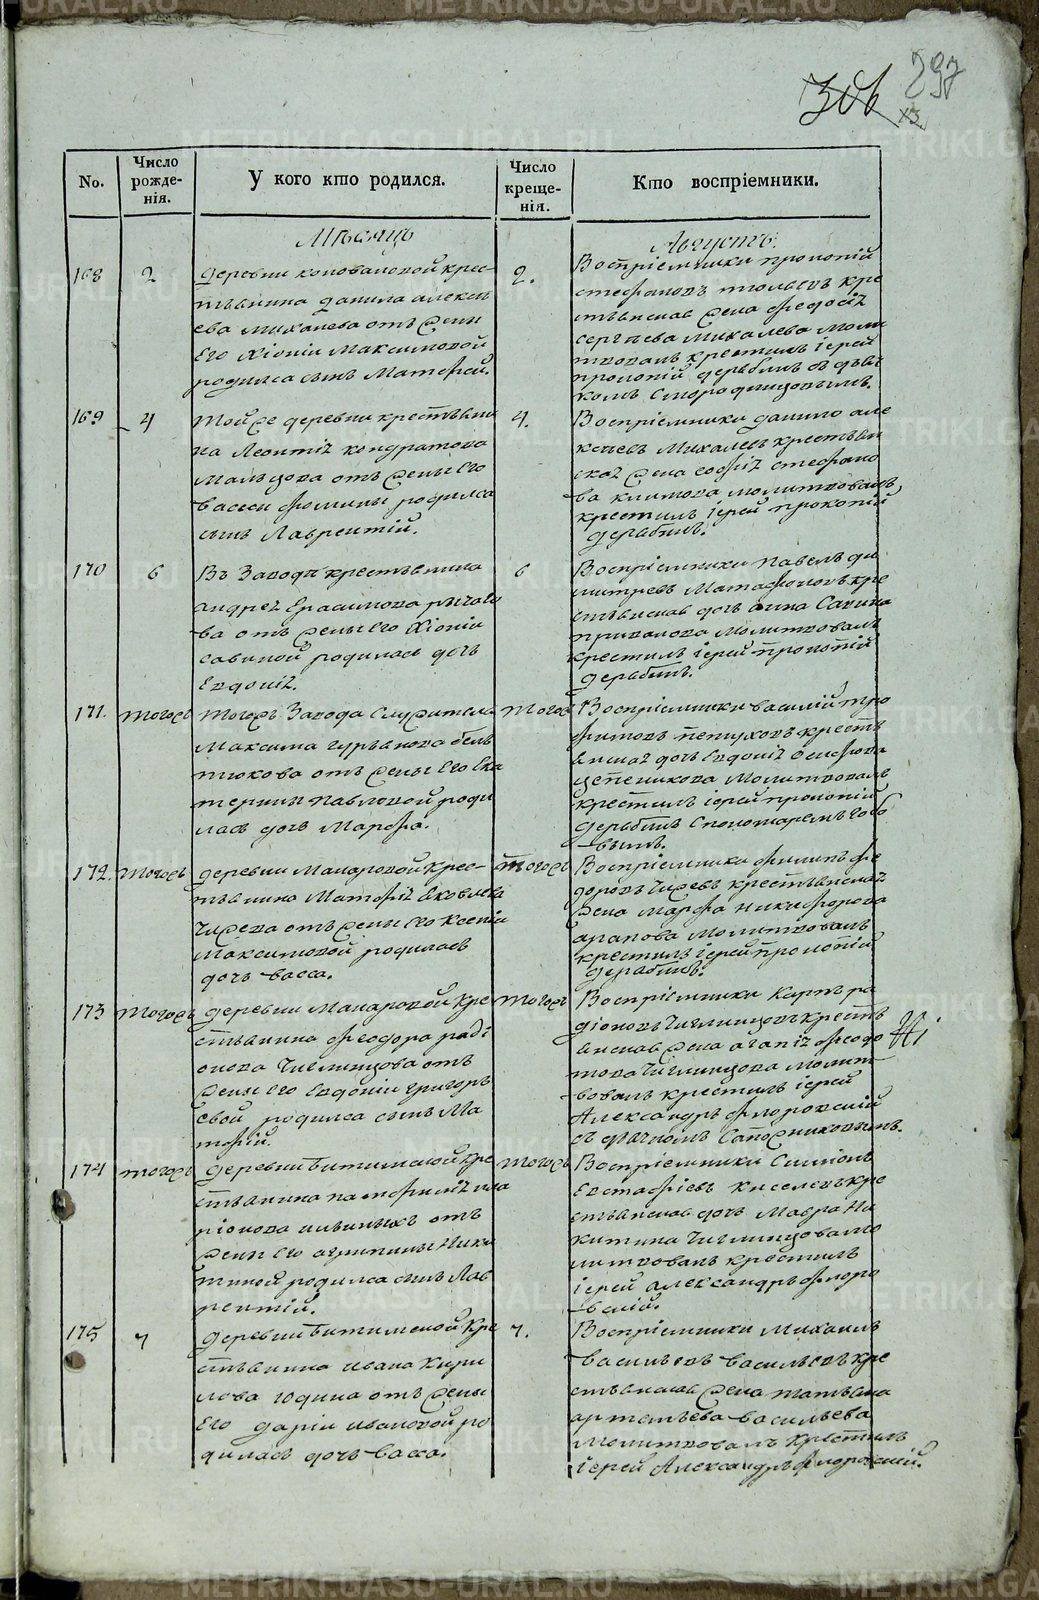 297
306
13.
No.
Число рожденія.
У кого кто родился.
Число крещенія.
Кто воспріемники.
Мѣсяцъ
Августъ.
168
2
деревни коноваловой крес-
тьянина данила алексѣ
ева михалева отъ жены
его Хіоніи Максимовой
родился сынъ Матфей.
2.
Воспріемники прокопій
стефановъ кре
стьянская жена феодосія
сергѣева михалева моли
твовалъ крестилъ іерей
прокопій дерябинъ съ дья
комъ Смородинцовымъ.
169
4
Той же деревни крестьяни
на Леонтія кондратова
Мальцова отъ жены его
вассы фомины родился
сынъ Лаврентій.
4.
Воспріемники данило але
ксѣевъ Михалевъ крестьян
ская жена софія стефано
ва климова молитвовалъ
крестилъ іерей прокопій
дерябинъ.
170
6
Въ Заводѣ крестьянина
андрея Ерасимова рычаго
ва отъ жены его Хіоніи
савиной родилась дочь
Евдокія.
6
Воспріемники павелъ ди
митревъ Матафоновъ кре
стьянская дочь анна Савина
привалова Молитвовалъ
крестилъ іерей прокопій
дерябинъ.
171.
тогожъ
тогожъ Завода Служителя
Максима гурьянова бѣль
тюкова отъ жены его Ека
терины павловой роди
лась дочь Марфа.
тогожъ
Воспріемники василій тро
фимовъ пепуховъ крестъ
янская дочь Евдокія Осифова
щепеткова Молитвовалъ
крестилъ іерей прокопій
дерябинъ с пономаремъ бобо
вымъ.
172.
тогожъ
деревни Макаровой крес-
тьянина Матфія яковлева
Чижева отъ жены его ксеніи
Максимовой родилась
дочь васса.
тогожъ
Воспріемники филипъ фе
доровъ Чижевъ крестьянская
жена марфа никифорова
арапова Молитвовалъ
крестилъ іерей прокопій
дерябинъ.
173
тогожъ
деревни Макаровой кре
стьянина феодора раді
онова Чиглинцова отъ
жены его Евдокіи григорь
евой родился сынъ Ма
тфій.
тогожъ
Воспріемники Карпъ ра
діоновъ Чиглинцовъ крестъ
янская жена агапія феодо
това Чиглинцова молит
вовалъ крестилъ іерей
Александръ флоровскій
съ дьячкомъ Сапожниковымъ.
174
тогожъ
деревни битимской кре
стьянина памфилія ила
ріонова ильиныхъ отъ
жены его агрипины Ники
тиной родился сынъ Лав
рентій.
тогожъ
Воспріемники Симіонъ
Евстафіевъ киселевъ кре
стьянская дочь Мавра Ни
китина Чиглинцова мо
литвовалъ крестилъ
іерей александръ флоро
вскій.
175
7
деревни битимской кре
стьянина ивана кири
лова юдина отъ жены
его даріи ивановой ро
дилась дочь васса.
7.
Воспріемники михаилъ
васильевъ васильевъ кре
стьянская жена татьяна
артемьева васильева
Молитвовалъ крестилъ
іерей Александръ флоровскій.
METRIKI.GASO-URAL.RU